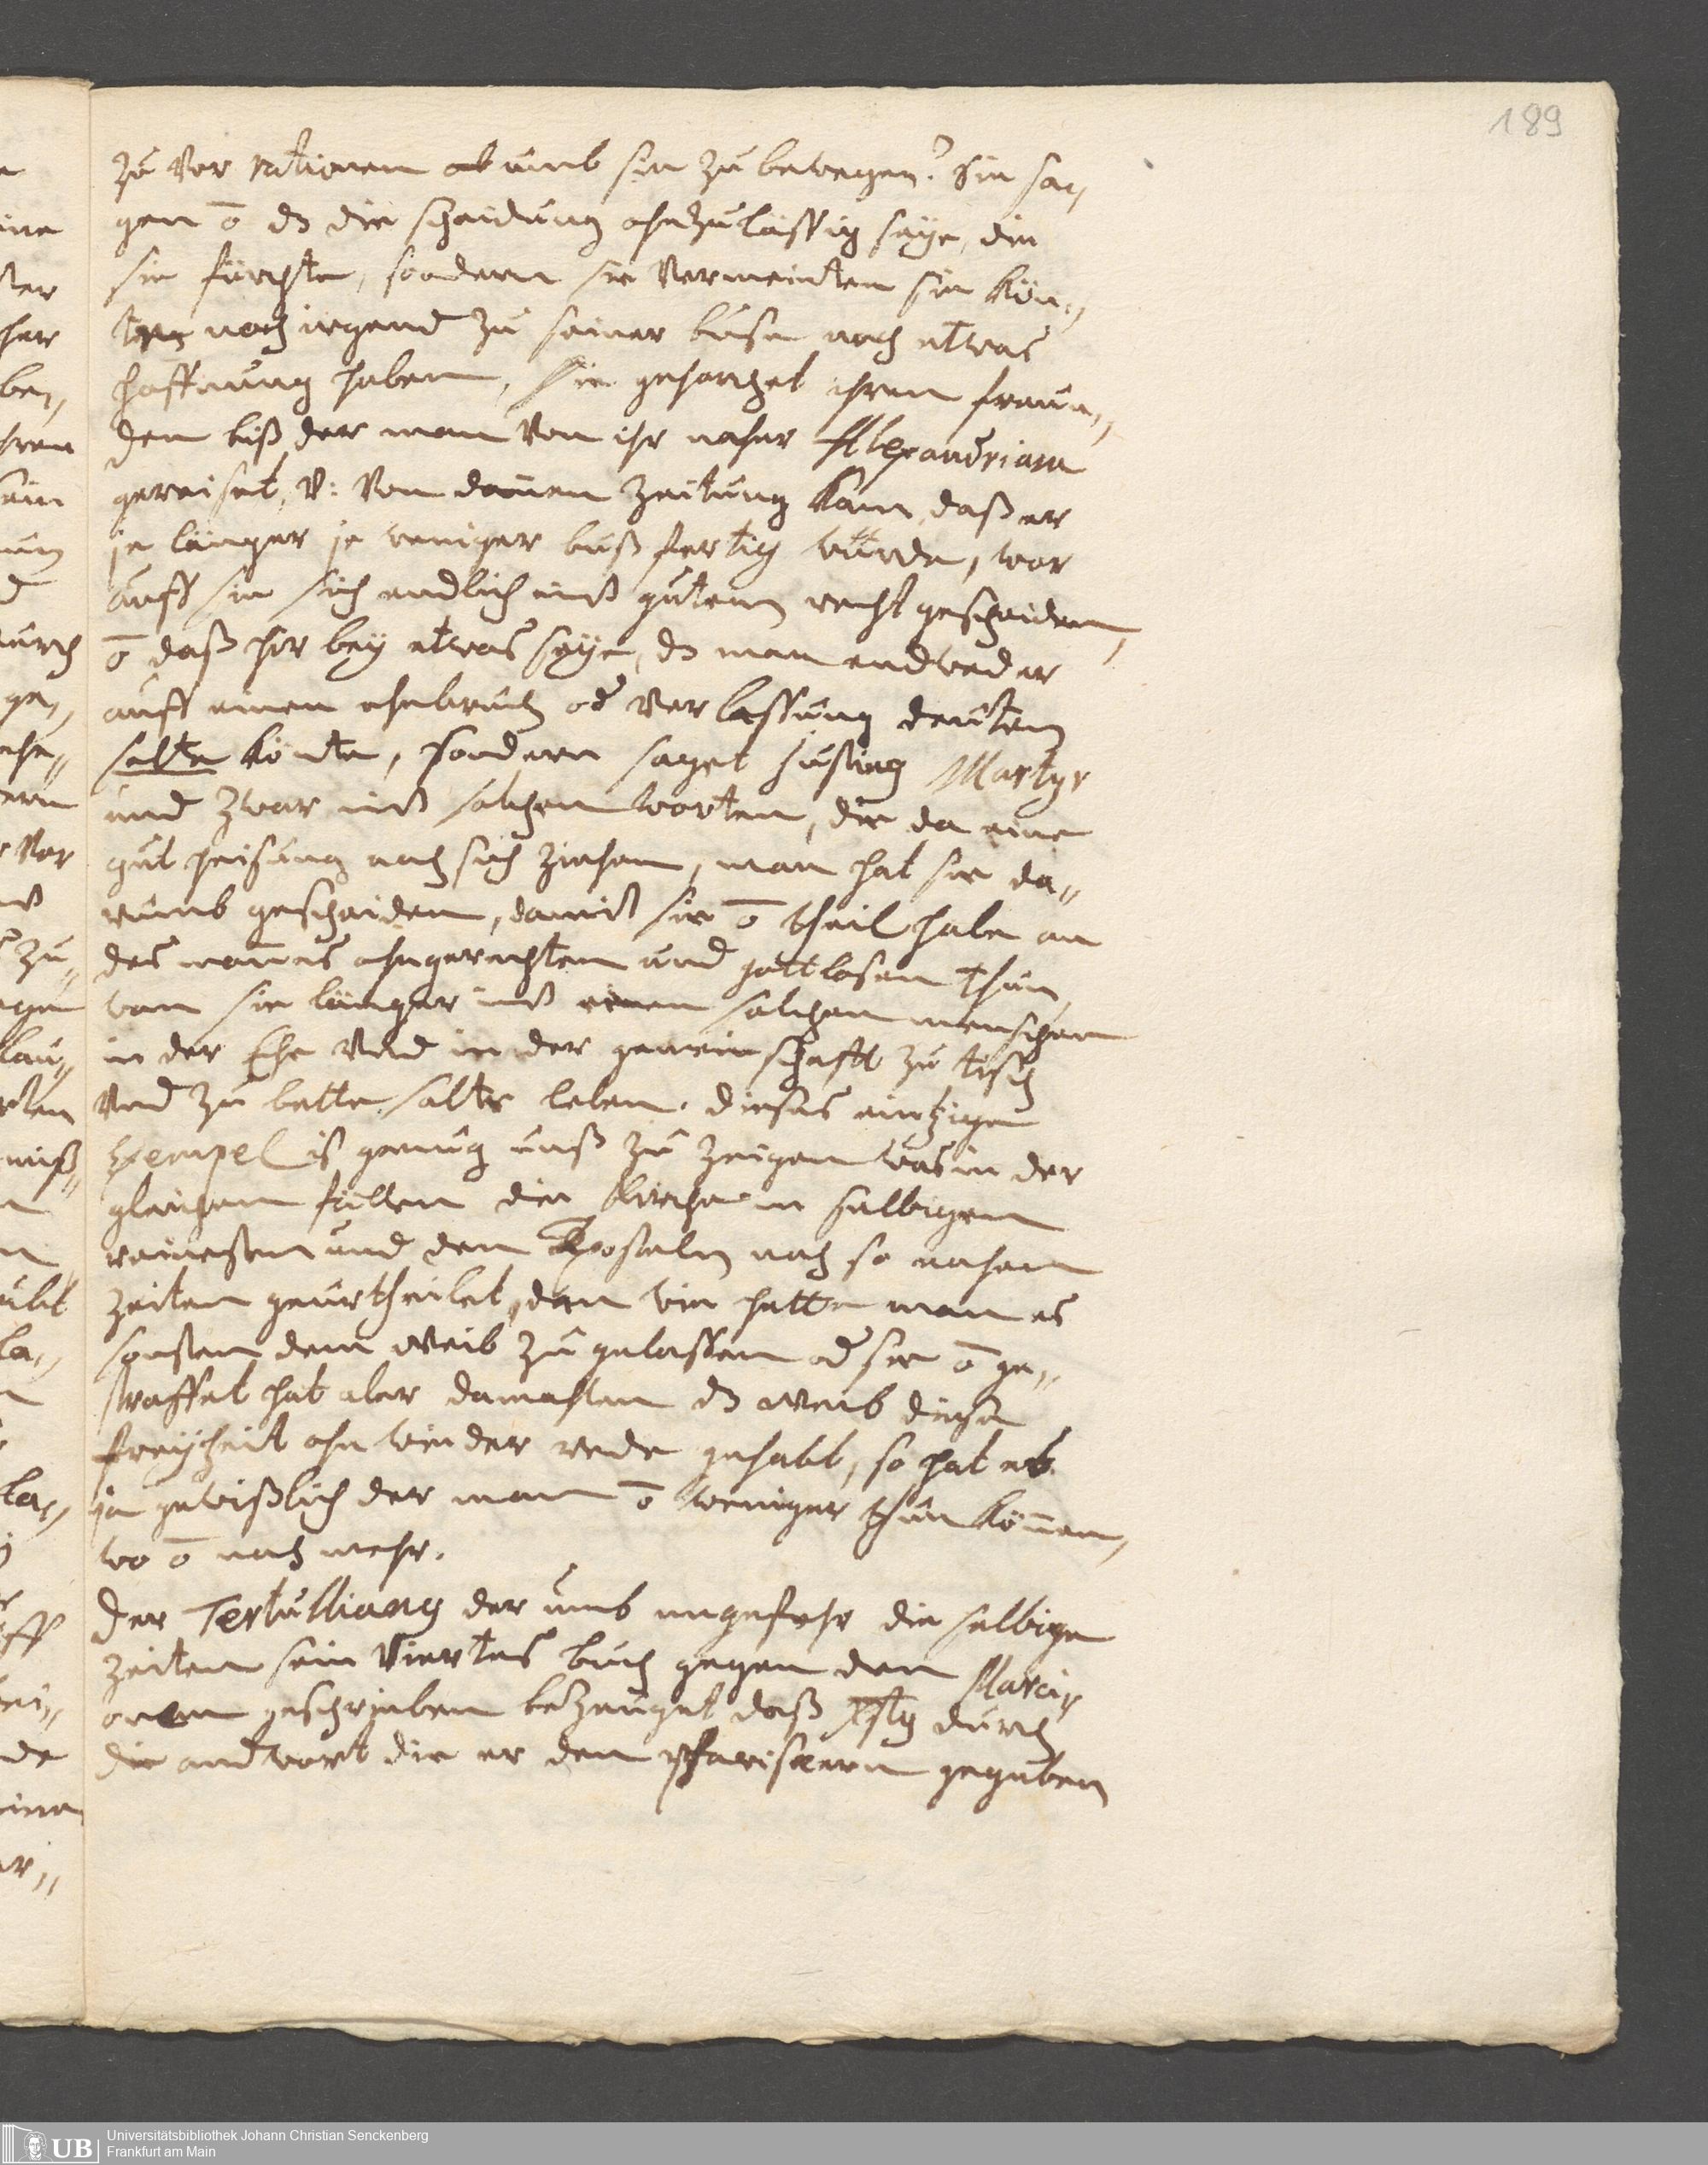 189
zu Vor rationem ab umb sie zu bewegen? Sie sa,,
gen o dz die scheidung ohnzulässig seye, die
sie fürchte, sondern sie Vermeinten sie kön,,
ten noch irgend zu seiner buse noch etwas
hoffnung haben, sie gehorchet ihren freun,,
den biß der man Von ihr naher Alexandriam
gereiset, V: Von dannen Zeitung kam, daß er
je länger je weniger bußfertig würde, wor
auff sie sich endlich mit gutem recht gescheiden,
o daß hier bey etwas seye, dz man endweder
auff einen ehebruch od Verlassung deuten
solte könte, sondern saget Justing Martyr
und zwar mit solchen worten, die da eine
gut heisung nach sich ziehen, man hat sie da,,
rumb gescheiden, damit sie o theil habe an
des mannes ohngerechtem und gottlosen thun,
wan sie länger mit einem solchen menschen
in der Ehe Vnd in der gemeinschafft zu tisch
Vnd zu bette solte leben. dieses eintzige
Exempel ist genug unß zu zeigen was in der
gleichen fällen die Kirche in selbigen
reinesten und den Aposteln noch so nahen
Zeiten geurtheilet, dan wie hatte man es
sonsten dem Weib zugelassen od sie o ge,,
straffet hat aber damahlen dz Weib diese
freyheit ohn wieder rede gehabt, so hat es
ja gewißlich der man o weniger thun können,
wo o noch mehr.
Der Tertulliang der umb ungefehr die selbige
Zeiten sein Viertes buch gegen den Marci,
onem geschrieben bezeuget daß Xstg durch
die andwort die er den Pharisaeern gegeben
Universitätsbibliothek Johann Christian Senckenberg
Frankfurt am Main
UB